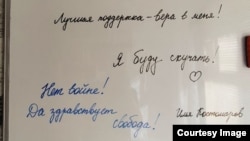 Лучшая поддержка – вера в меня!
Я буду скучать!
Нет войне!
Да здравствует
свобода!
Илья Костюкаров
Courtesy Image